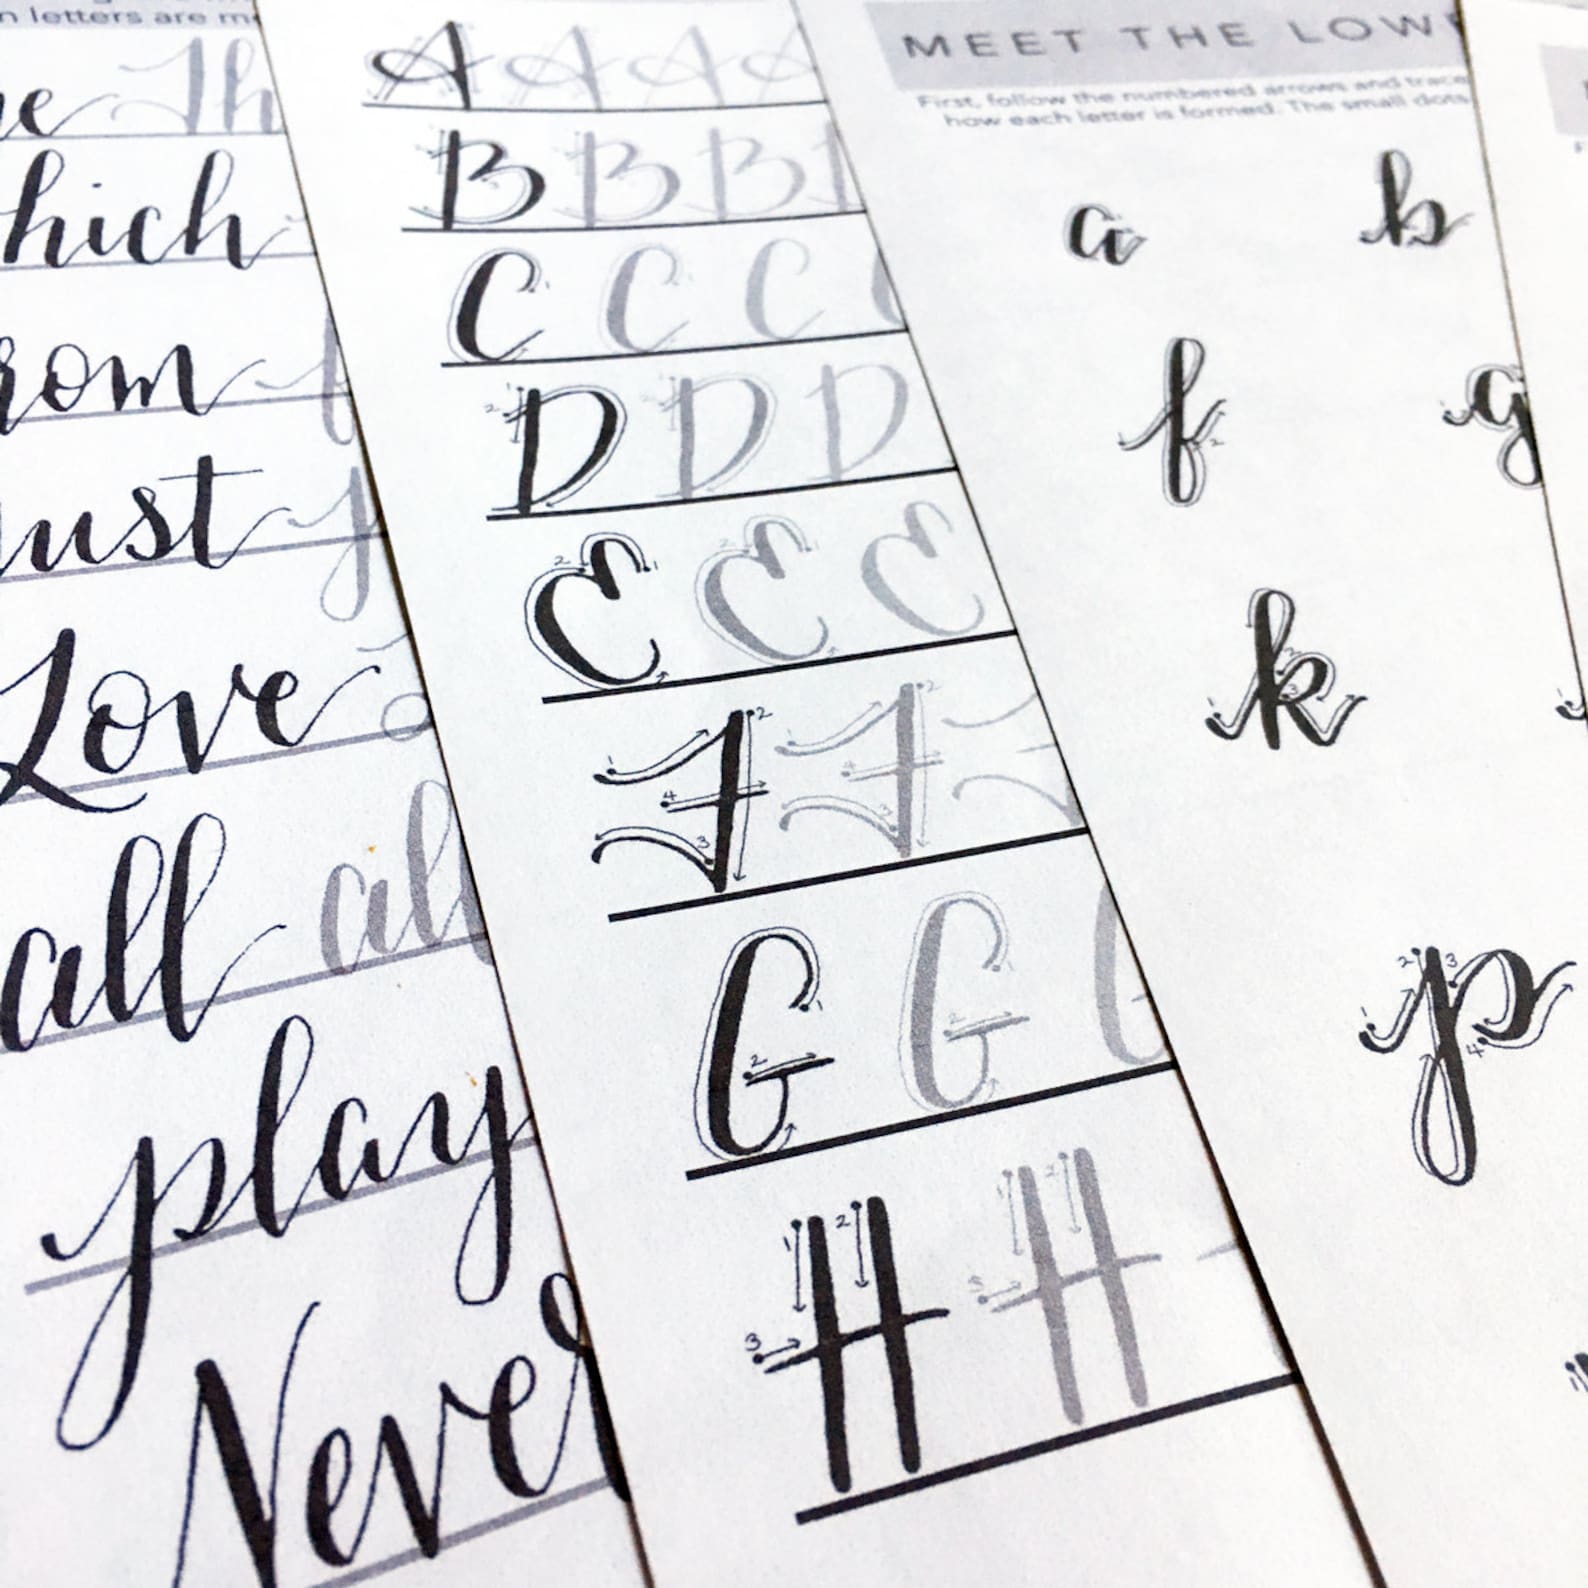 n letters are
Th
hich
rom
ust
Love
all al
play
Never
A A A A
B B B
C C C
D D D
E E E
F F
G G
H H
MEET THE LOW
First, follow the numbered arrows and trace
how each letter is formed. The small dots
a b
f g
k
p